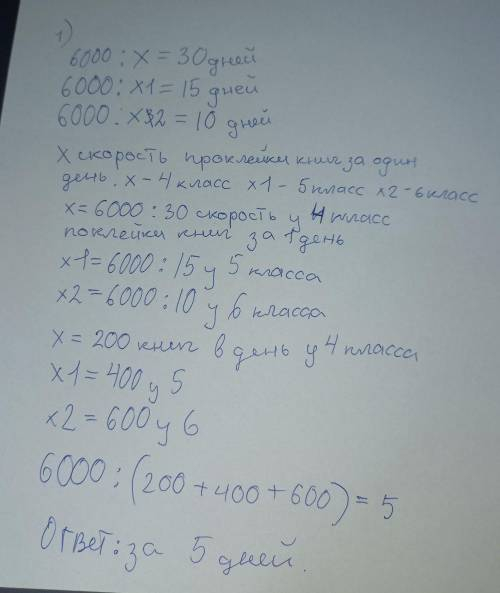 1)
6000 : x = 30 дней
6000 : x1 = 15 дней
6000 : x2 = 10 дней
X скорость проклейки книг за один
день. x - 4 класс x1 - 5 класс x2 - 6 класс
x = 6000 : 30 скорость у 4 класс
поклейки книг за 1 день
x1 = 6000 : 15 у 5 класса
x2 = 6000 : 10 у 6 класса
x = 200 книг в день у 4 класса
x1 = 400 у 5
x2 = 600 у 6
6000 : (200 + 400 + 600) = 5
Ответ: за 5 дней.